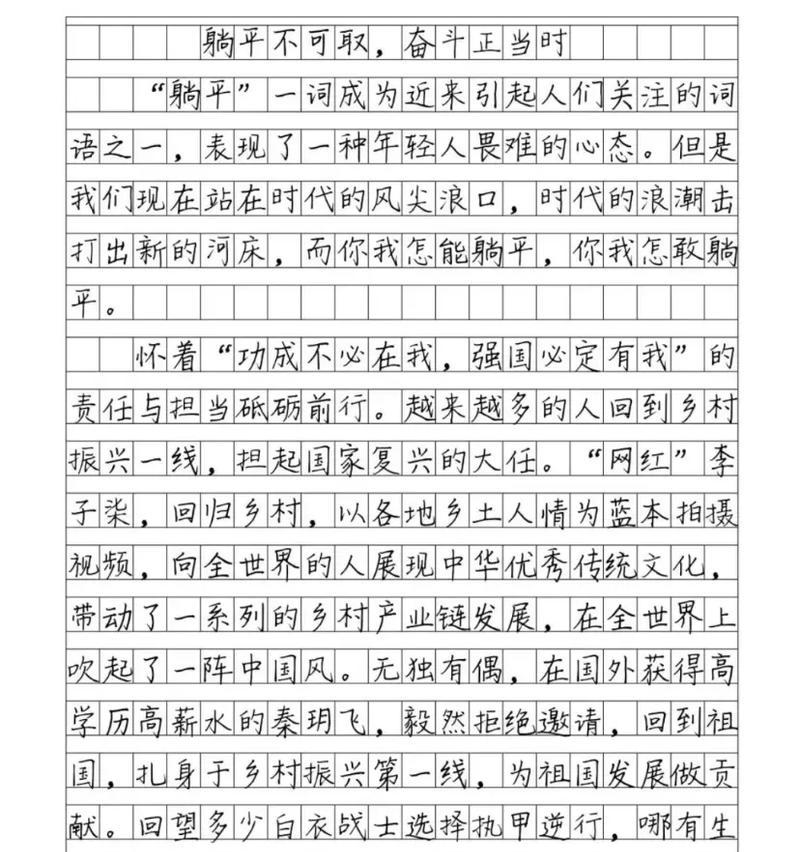 躺平不可取，奋斗正当时
“躺平”一词成为近来引起人们关注的词
语之一，表现了一种年轻人畏难的心态。但是
我们现在站在时代的风尖浪口，时代的浪潮击
打出新的河床，而你我怎能躺平，你我怎敢躺
平。
怀着“功成不必在我，强国必定有我”的
责任与担当砥砺前行。越来越多的人回到乡村
振兴一线，担起国家复兴的大任。“网红”李
子柒，回归乡村，以各地乡土人情为蓝本拍摄
视频，向全世界的人展现中华优秀传统文化，
带动了一系列的乡村产业链发展，在全世界上
吹起了一阵中国风。无独有偶，在国外获得高
学历高薪水的秦玥飞，毅然拒绝邀请，回到祖
国，扎身于乡村振兴第一线，为祖国发展做贡
献。回望多少白衣战士选择执甲逆行，哪有生